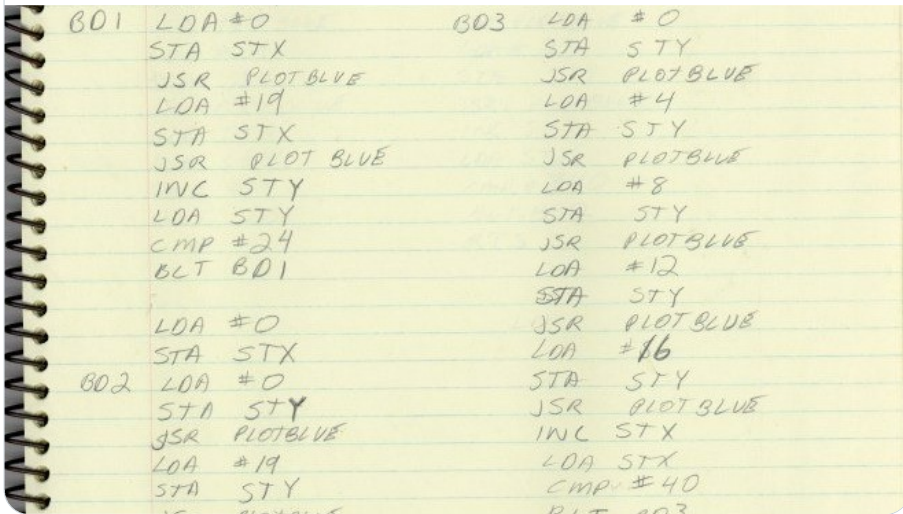 BD1 LDA #0
STA STX
JSR PLOTBLUE
LDA #19
STA STX
JSR PLOT BLUE
INC STY
LDA STY
CMP #24
BLT BD1
LDA #0
STA STX
BD2 LDA #0
STA STY
JSR PLOTBLUE
LDA #19
STA STY
BD3 LDA #0
STA STY
JSR PLOTBLUE
LDA #4
STA STY
JSR PLOTBLUE
LDA #8
STA STY
JSR PLOTBLUE
LDA #12
STA STY
JSR PLOTBLUE
LDA #16
STA STY
JSR PLOTBLUE
INC STX
LDA STX
CMP #40
BLT BD3